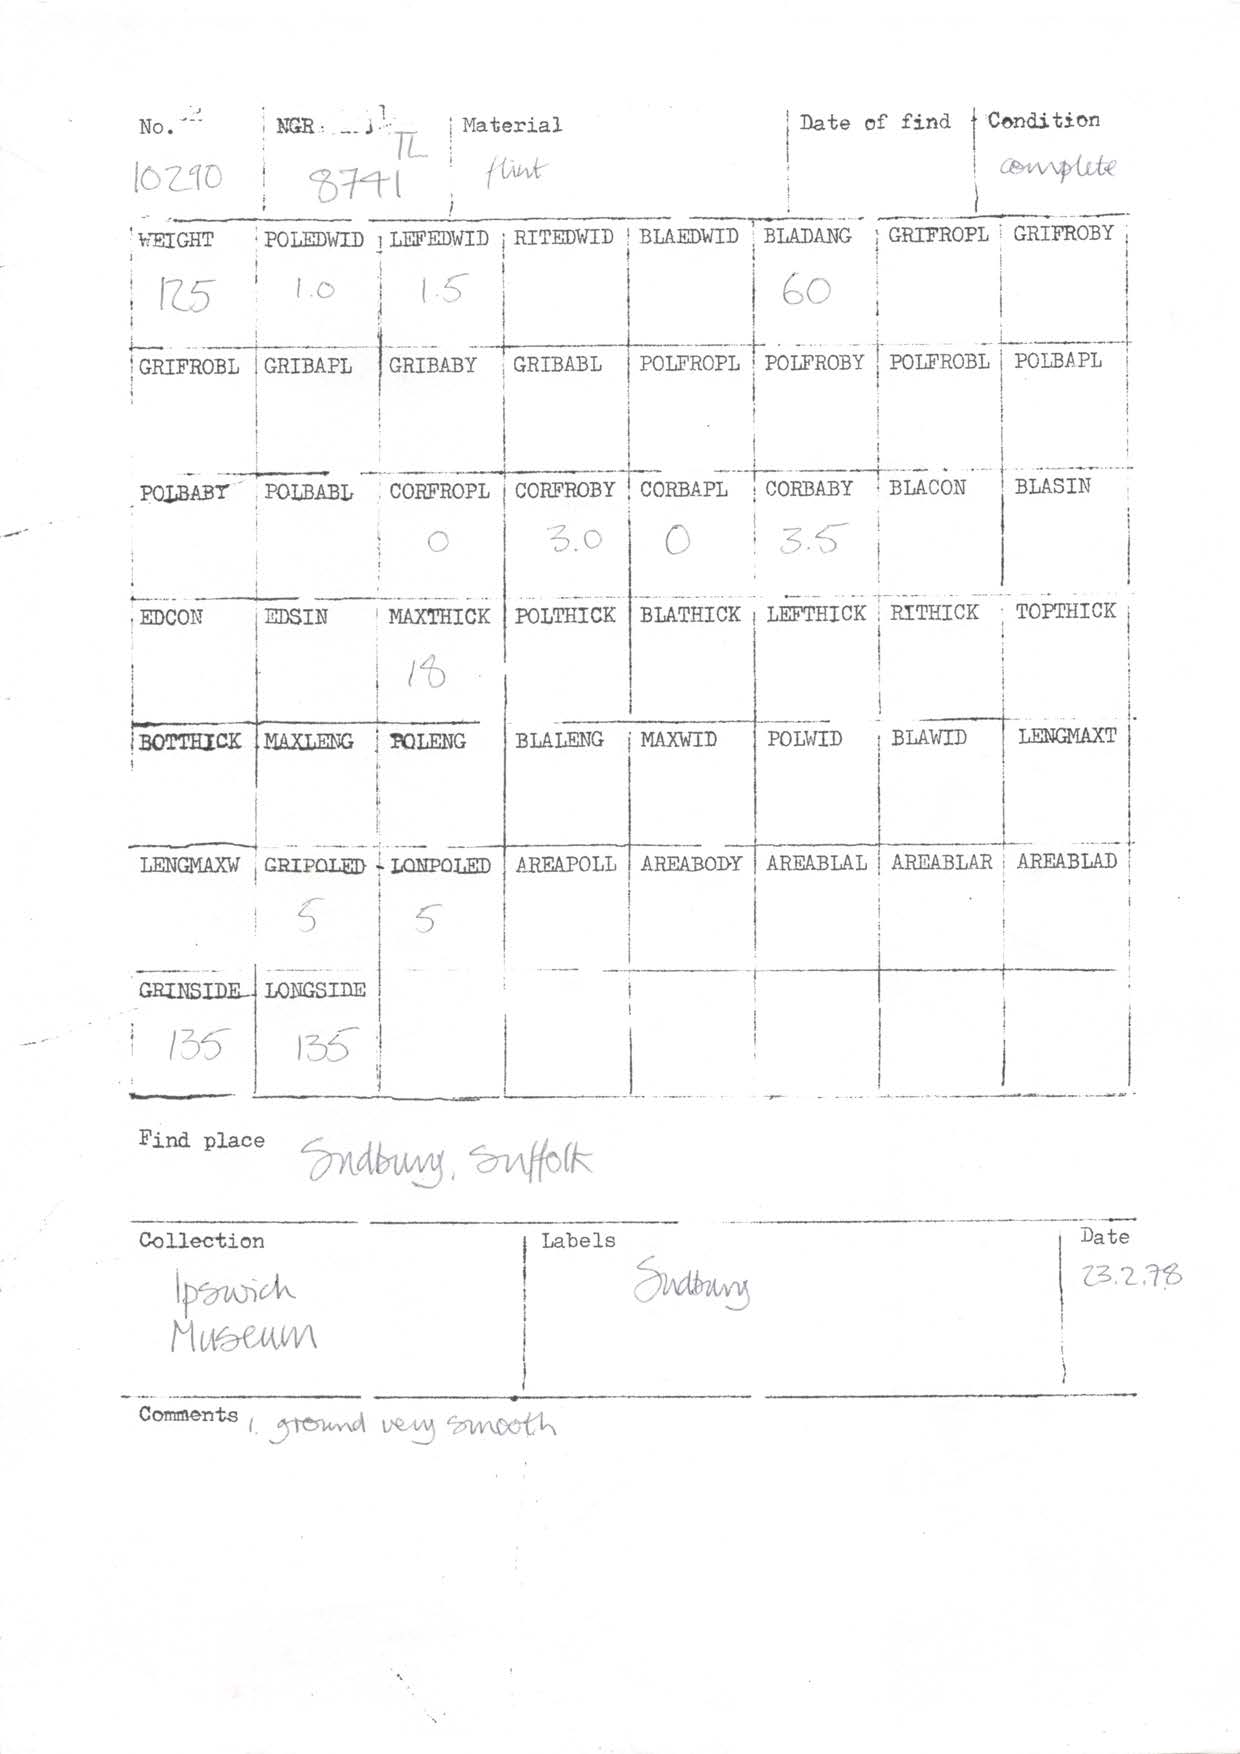 No. NGR: Material Date of find Condition
10290 TL 8741 flint complete
WEIGHT POLEDWID LEFEDWID RITEDWID BLAEDWID BLADANG GRIFROPL GRIFROBY
125 1.0 1.5 60
GRIFROBL GRIBAPL GRIBABY GRIBABL POLFROPL POLFROBY POLFROBL POLBAPL
POLBABY POLBABL CORFROPL CORFROBY CORBAPL CORBABY BLACON BLASIN
0 3.0 0 3.5
EDCON EDSIN MAXTHICK POLTHICK BLATHICK LEFTHICK RITHICK TOPTHICK
18
BOTTHICK MAXLENG POLENG BLALENG MAXWID POLWID BLAWID LENGMAXT
LENGMAXW GRIPOLED LONPOLED AREAPOLL AREABODY AREABLAL AREABLAR AREABLAD
5 5
GRINSIDE LONGSIDE
135 135
Find place Sudbury, Suffolk
Collection Labels Date
Ipswich Sudbury 23.2.78
Museum
Comments 1. ground very smooth